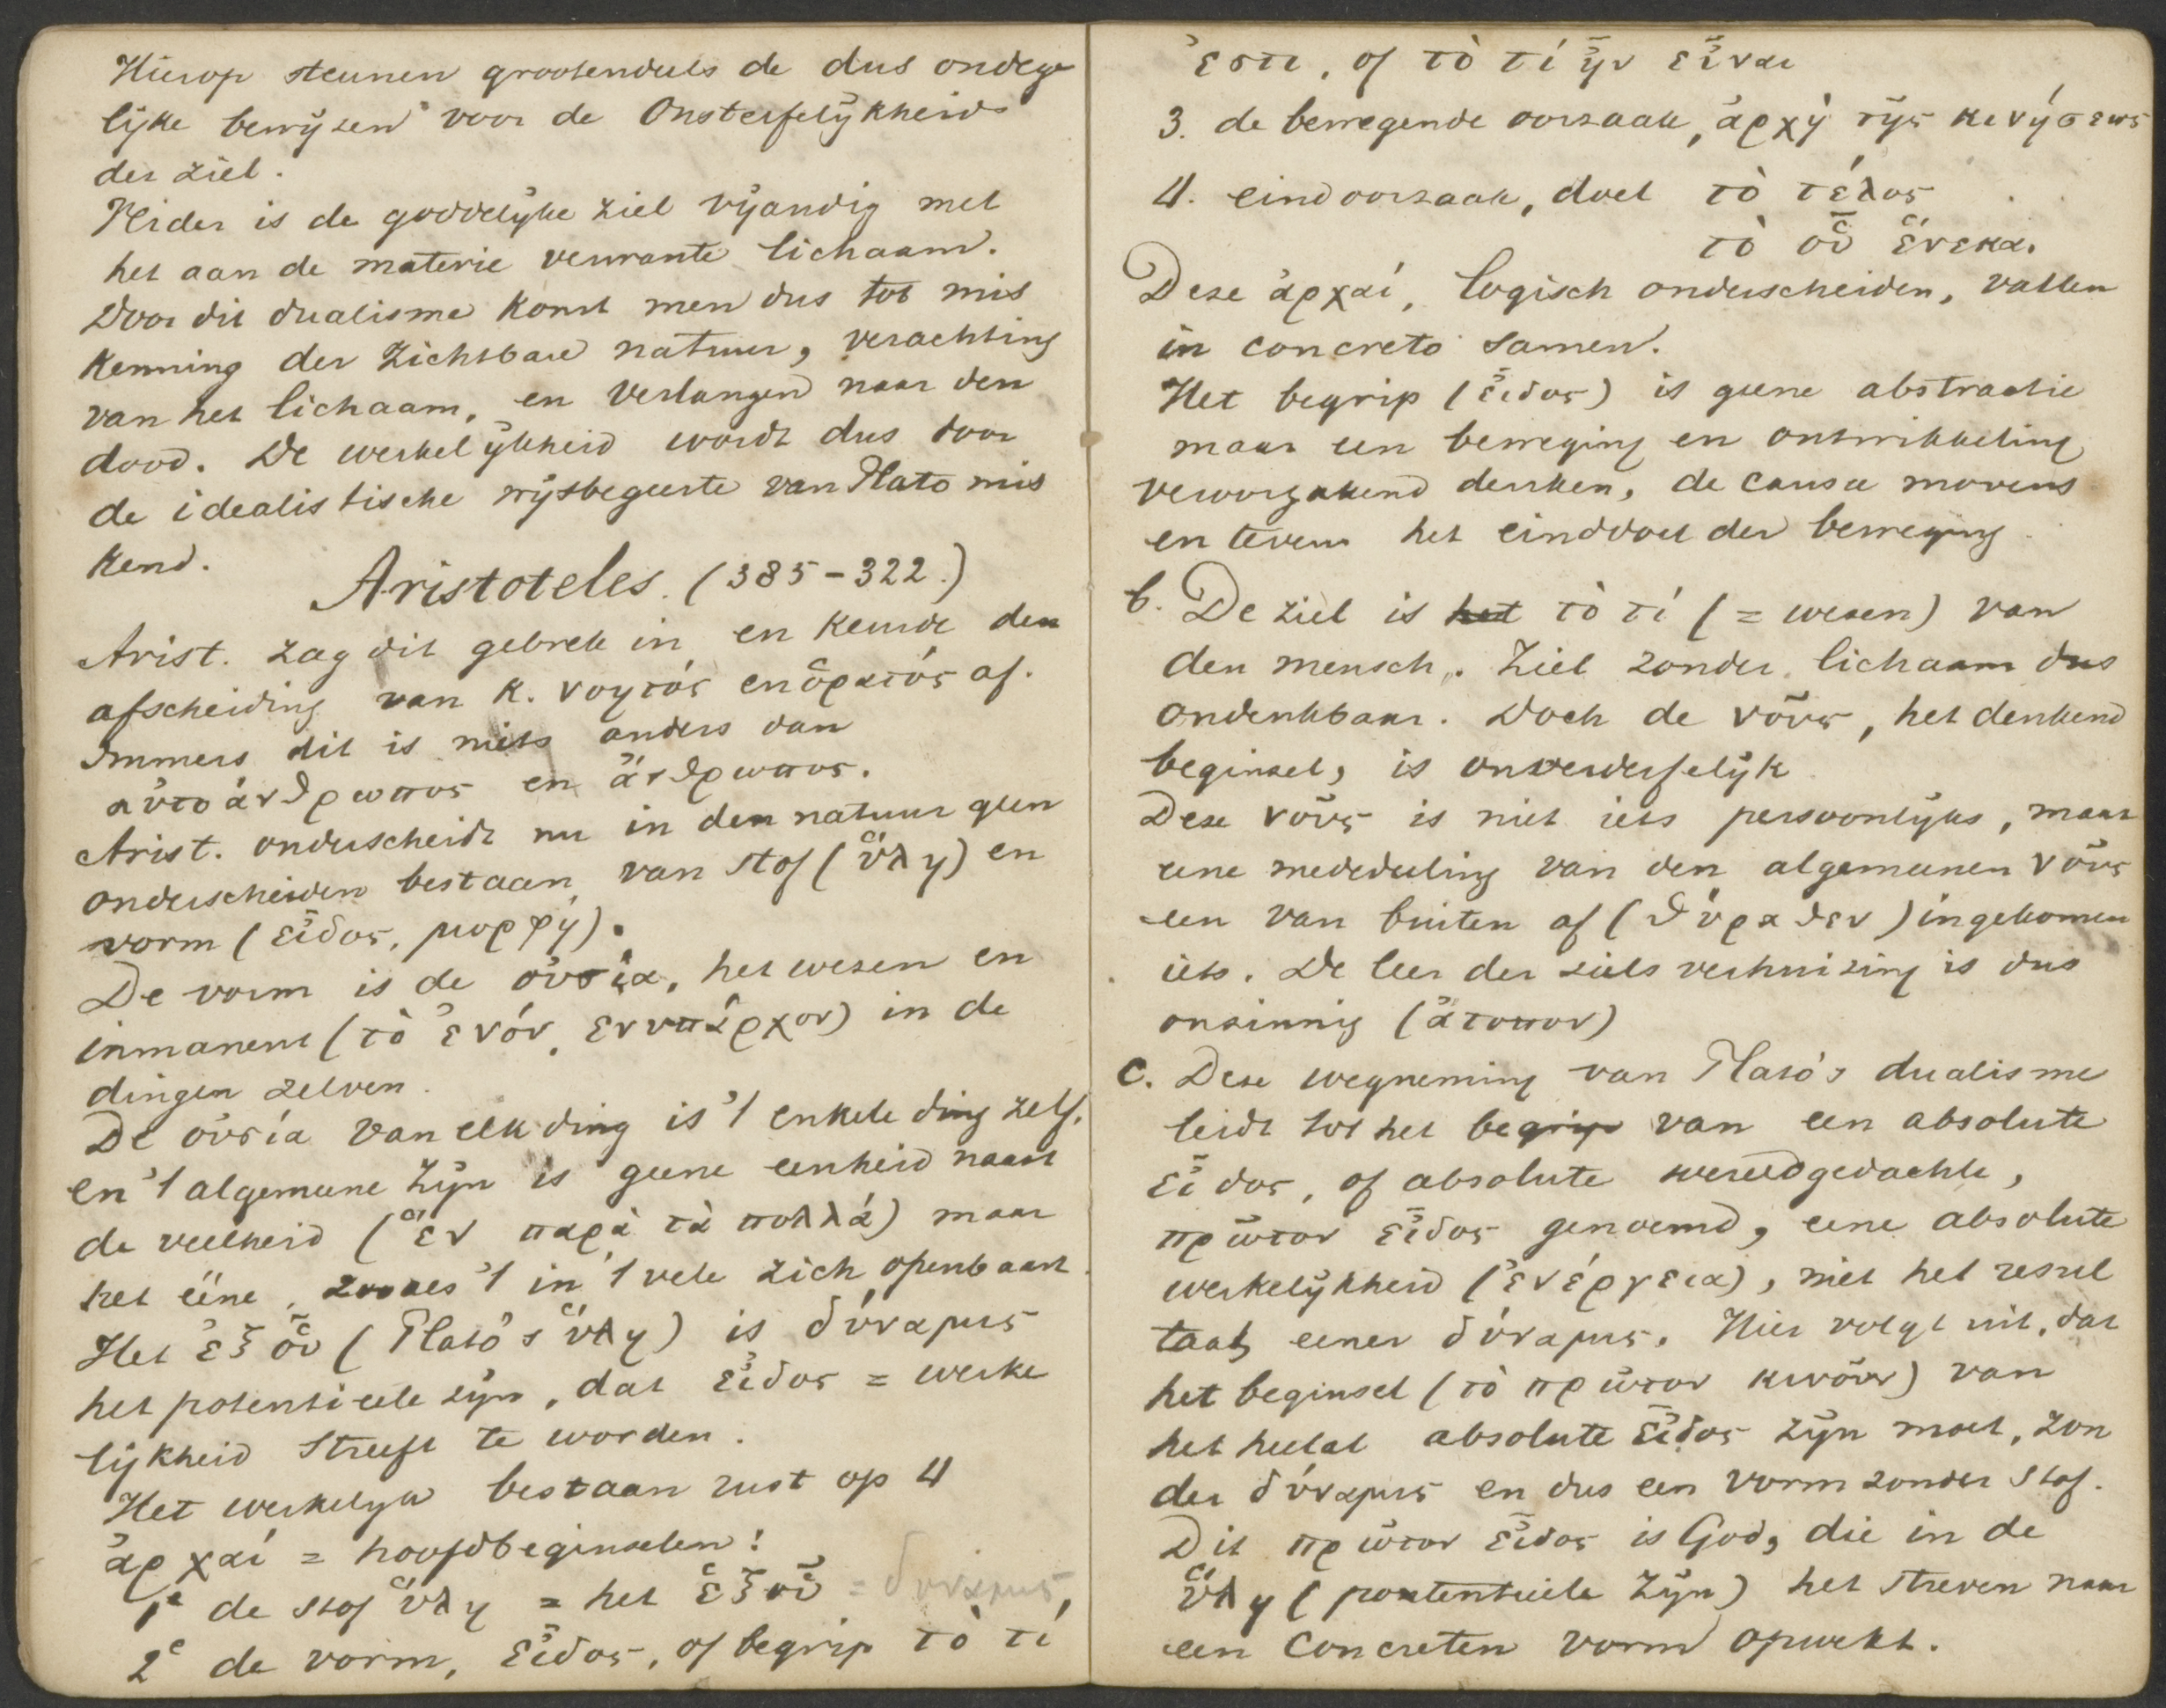 Hierop steunen grootendeels de dus ondege
lijke bewijzen voor de Onsterfelijkheid
der ziel.
Verder is de goddelijke ziel vijandig met
het aan de materie verwante lichaam.
Door dit dualisme komt men dus tot mis
kenning der zichtbare natuur, verachting
van het lichaam, en verlangen naar den
dood. De werkelijkheid wordt dus door
de idealistische wijsbegeerte van Plato mis
kend.
Aristoteles. (385-322.)
Arist. zag dit gebrek in en keurde den
afscheiding van κ. νοητός en ὁρατός af.
Immers dit is niets anders dan
αὐτοάνθρωπος en ἄνθρωπος.
Arist. onderscheidt nu in den natuur geen
onderscheiden bestaan van stof (ὕλη) en
vorm (εἶδος, μορφή).
De vorm is de οὐσία, het wezen en
inmanent (τὸ ἐνόν, ενυπάρχον) in de
dingen zelven.
De οὐσία van elk ding is 't enkele ding zelf.
en 't algemeene zijn is geene eenheid naast
de veelheid (ἓν παρὰ τὰ πολλά) maar
het ééne, zooals 't in 't vele zich openbaart.
Het ἐξ οὗ (Plato's ὕλη) is δύναμις
het potentieele zijn, dat εἶδος = werke
lijkheid streeft te worden.
Het werkelijk bestaan rust op 4
ἀρχαί = hoofdbeginselen:
1e de stof ὕλη = het ἐξ οὗ = δυναμις,
2e de vorm, εἶδος, of begrip τὸ τί
ἐστι, of τὸ τί ἦν εἶναι
3. de bewegende oorzaak, ἀρχὴ τῆς κινήσεως
4. eindoorzaak, doel τὸ τέλος
τὸ οὗ ἕνεκα.
Deze ἀρχαί, logisch onderscheiden, vallen
in concreto samen.
Het begrip (εἶδος) is geene abstractie
maar een beweging en ontwikkeling
veroorzakend denken, de causa movens
en tevens het einddoel der beweging.
b. De ziel is het τὸ τί (= wezen) van
den mensch. Ziel zonder lichaam dus
ondenkbaar. Doch de νοῦς, het denkend
beginsel, is onverderfelijk.
Deze νοῦς is niet iets persoonlijks, maar
eene mededeeling van den algemeenen νοῦς
een van buiten af (θύραθεν) ingekomen
iets. De leer der zielsverhuizing is dus
onzinnig (ἄτοπον)
c. Deze wegneming van Plato's dualisme
leidt tot het begrip van een absolute
εἶδος, of absolute wereldgedachte,
πρῶτον εἶδος genoemd, eene absolute
werkelijkheid (ἐνέργεια), niet het resul
taat eener δύναμις. Hier volgt uit, dat
het beginsel (τὸ πρῶτον κινοῦν) van
het heelal absolute εἶδος zijn moet, zon
der δύναμις en dus een vorm zonder stof.
Dit πρῶτον εἶδος is God, die in de
ὕλη (potentieele zijn) het streven naar
een concreten vorm opwekt.